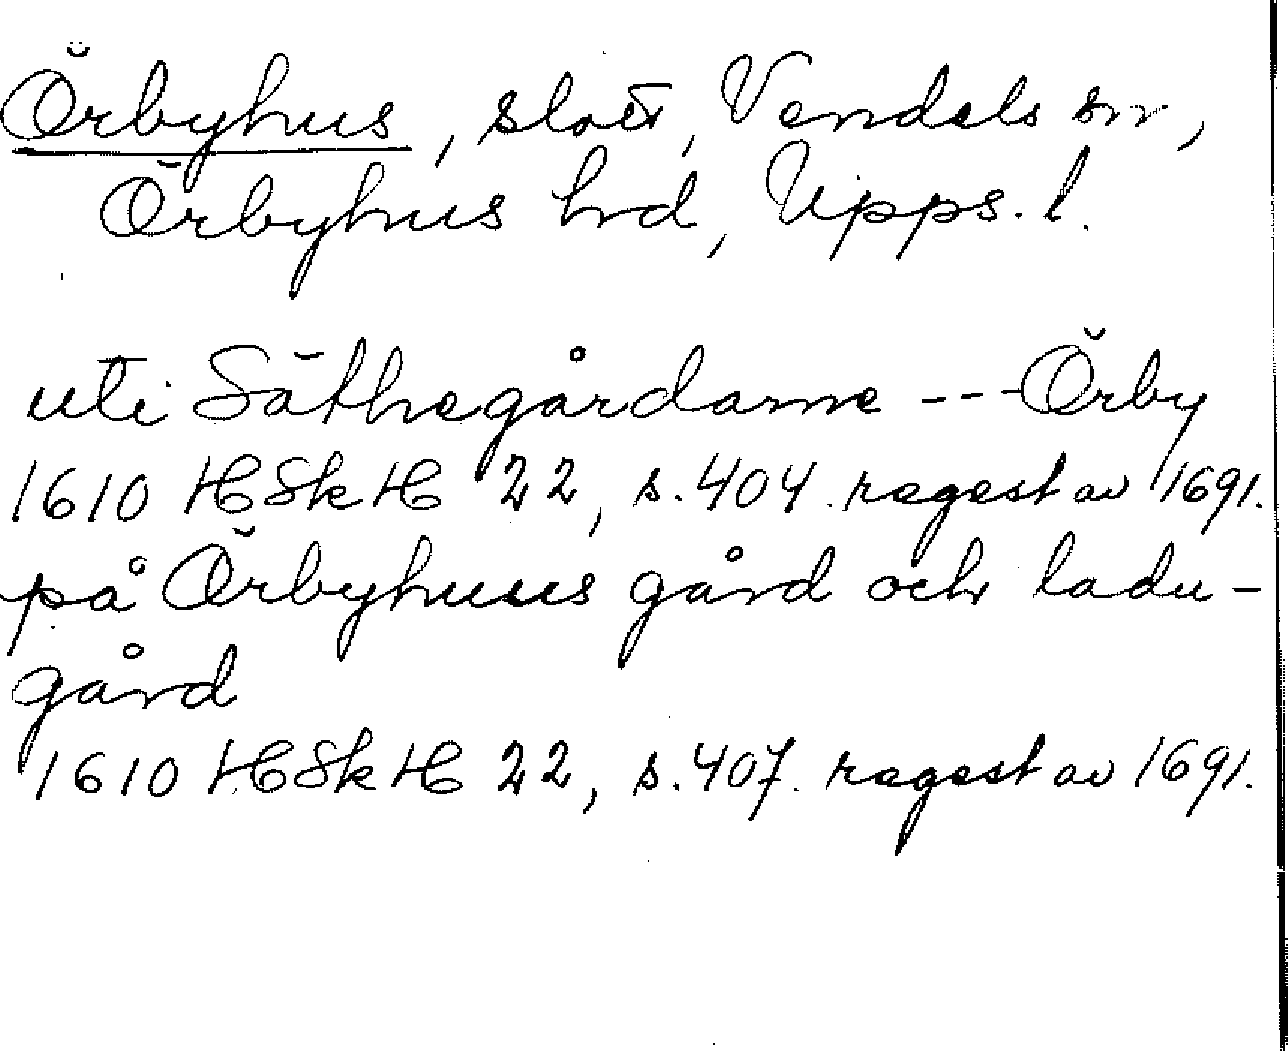 Örbyhus, slott, Vendels sn,
Örbyhus hrd, Upps. l.
uti Säthegårdarne --- Örby
1610 HSkH 22, s. 404. regest av 1691.
på Örbyhuus gård och ladu-
gård
1610 HSkH 22, s. 407. regest av 1691.